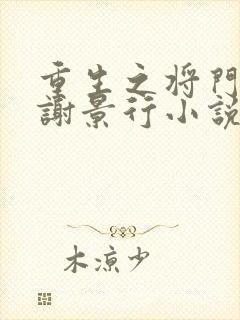 重生之将門
謝景行小說
木凉少